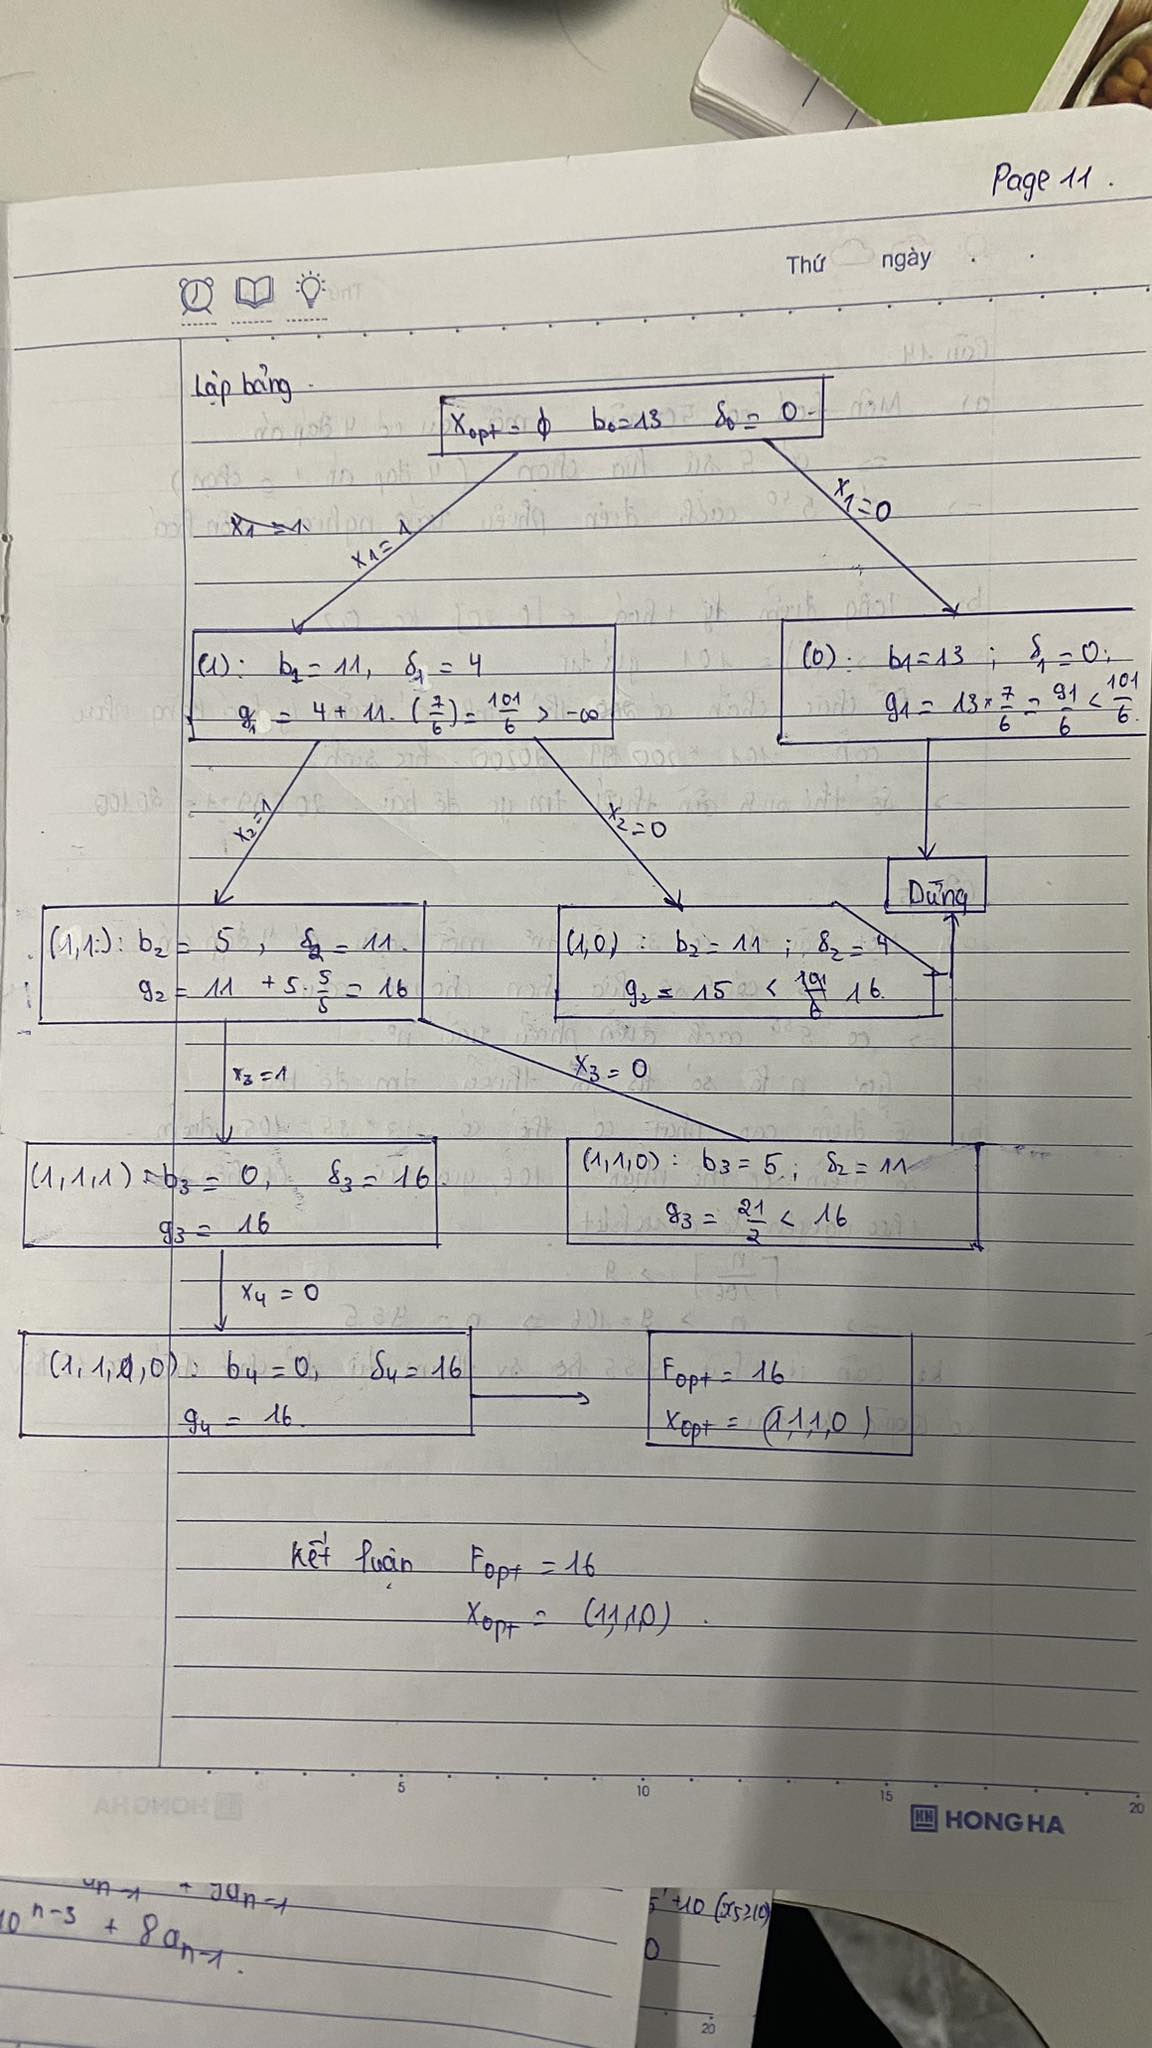 Page 11.
Thứ ngày . .
Lập bảng.
Xopt = ϕ b0=13 δ0 = 0.
x1=0
x1 = 1.
x1=1
(1): b1 = 11, δ1 = 4
g1 = 4 + 11.(7/6) = 101/6 > -∞
(0): b1=13 ; δ1 = 0;
g1 = 13 × 7/6 = 91/6 < 101/6.
x2=1
x2=0
Dừng
(1,1): b2 = 5, δ2 = 11.
g2 = 11 + 5.5/5 = 16
(1,0): b2 = 11 ; δ2 = 4
g2 = 15 < 101/6 16.
x3=1
x3 = 0
(1,1,1): b3 = 0, δ3 = 16
g3 = 16
(1,1,0): b3 = 5 ; δ2 = 11
g3 = 21/2 < 16
x4 = 0
(1,1,1,0): b4 = 0, δ4 = 16
g4 = 16.
Fopt = 16
Xopt = (1,1,1,0)
Kết luận Fopt = 16
Xopt = (1,1,1,0).
5 10 15 20
HONG HA
an-1 + 9an-1
10^n-3 + 8an-1.
+10 (x5≥10)
0
20